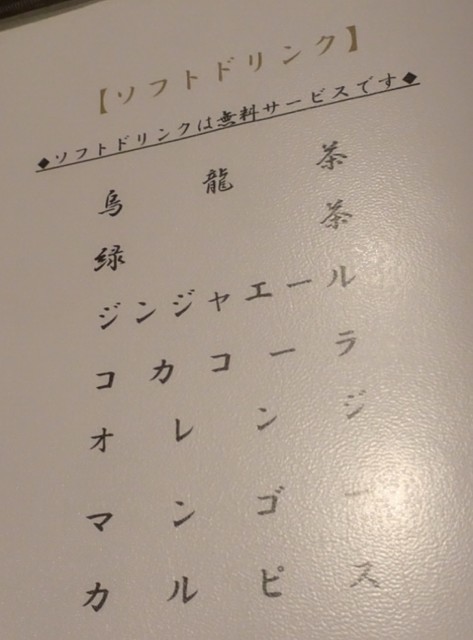 【ソフトドリンク】
◆ソフトドリンクは無料サービスです◆
烏龍茶
緑茶
ジンジャエール
コカコーラ
オレンジ
マンゴー
カルピス